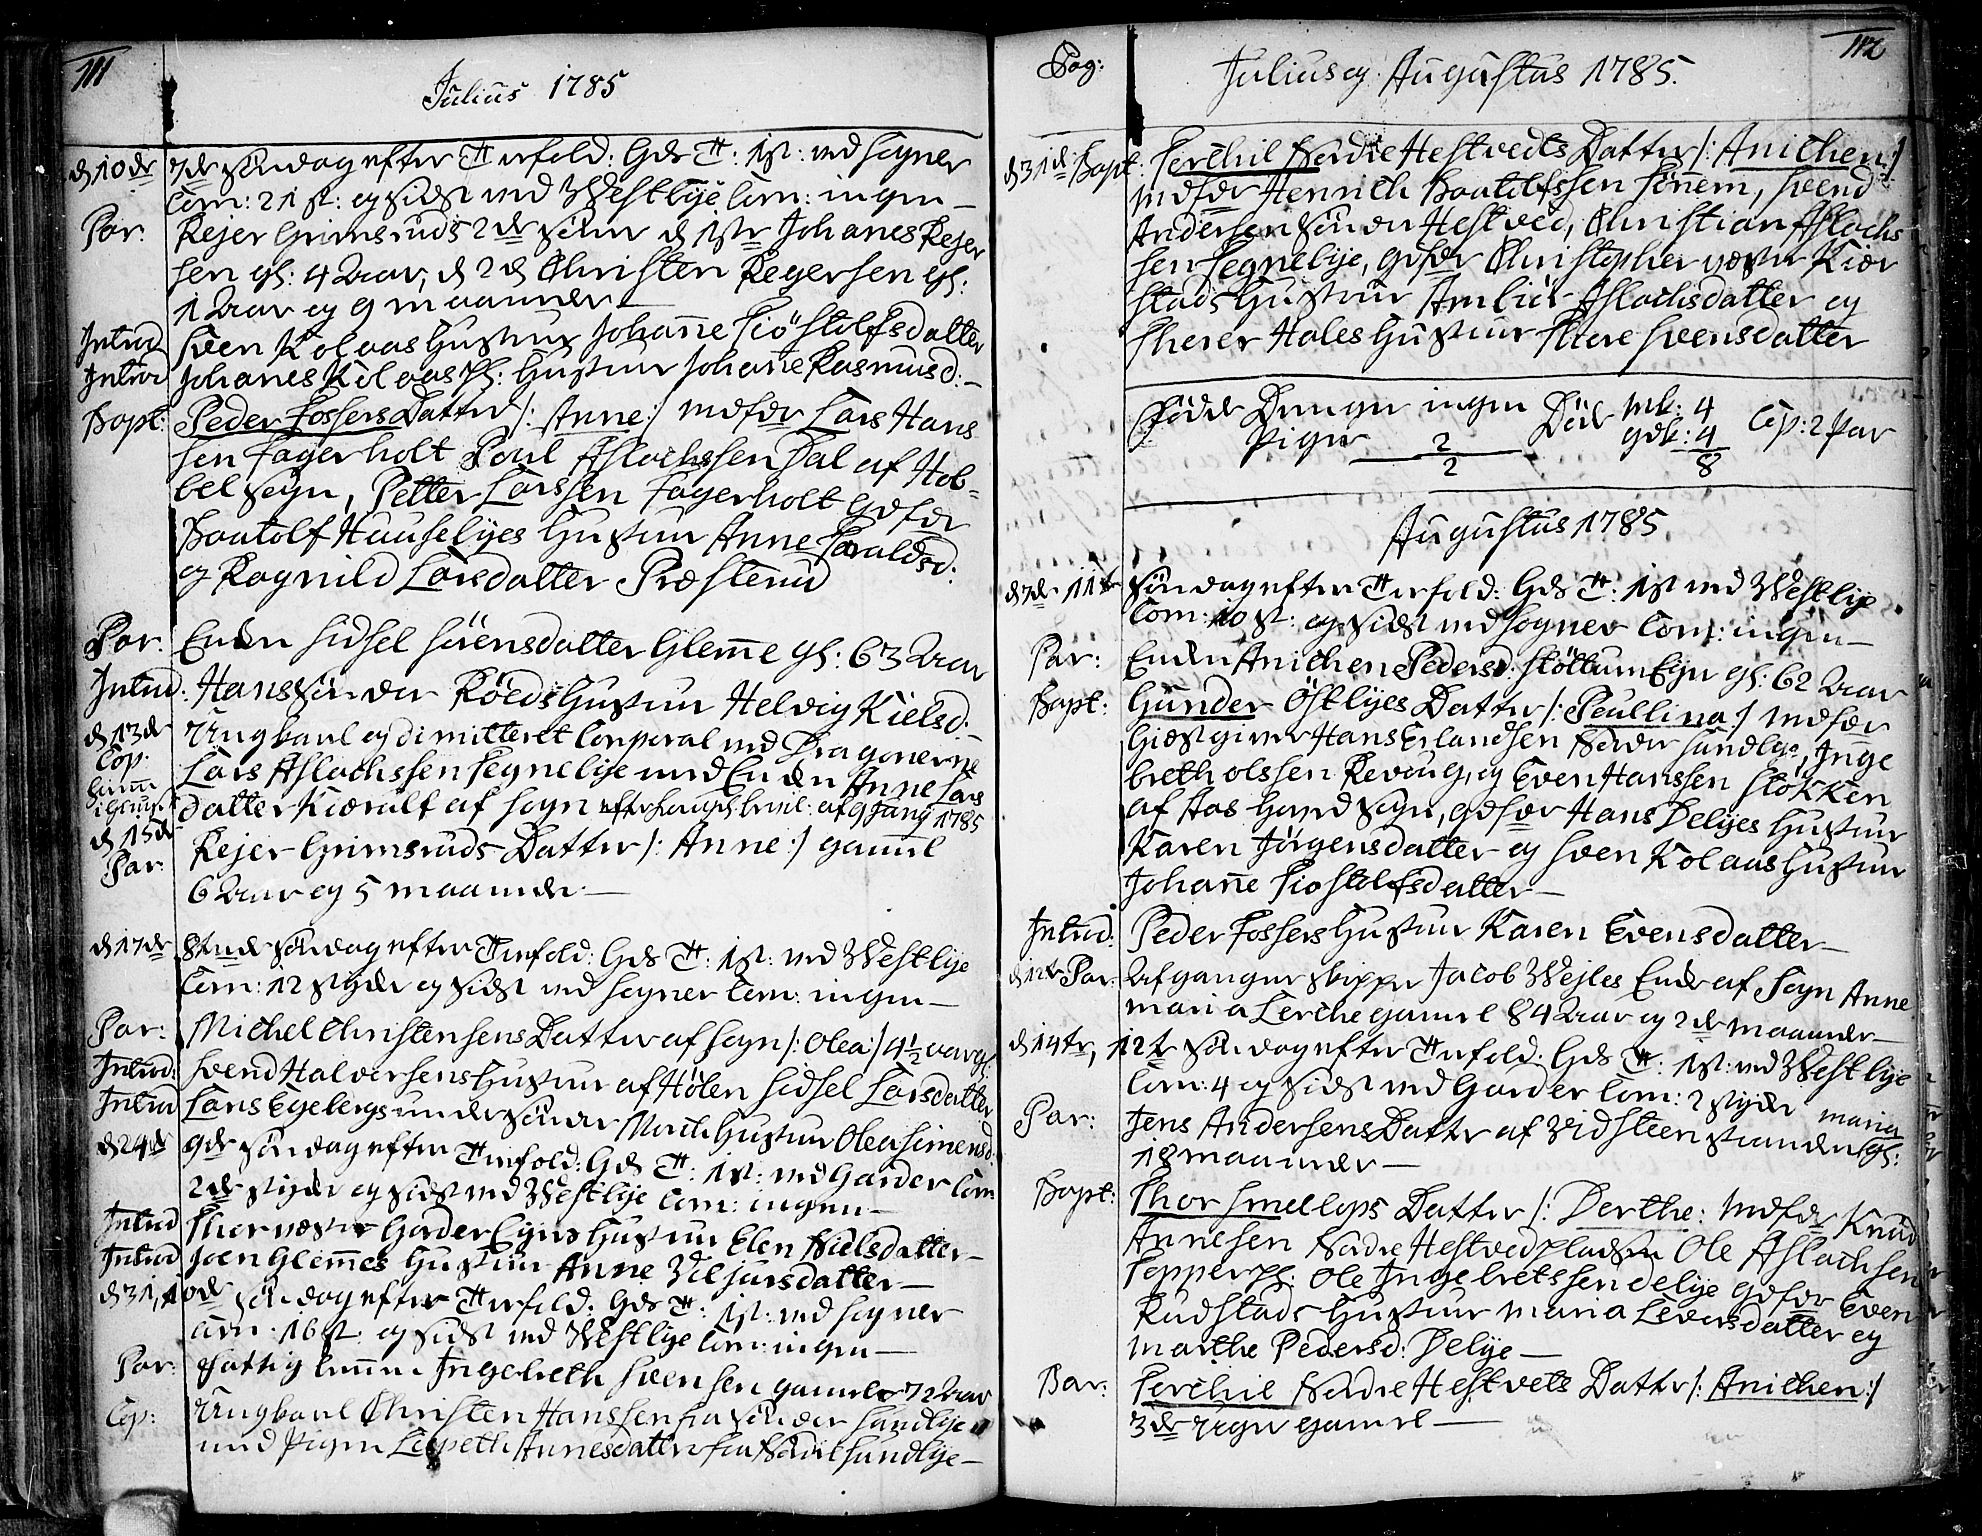 111
Julius 1785
d 10de 7de Söndag efter Trefold: Gds T: 1st: ved Sogner
Com: 21 st: og sidst ved Westbye Com: ingen —
Par: Rejer Grimsruds 2de Sönner d 1ste Johanes Rejer
sen gl: 4 Aar, d 2d Christen Rejersen gl:
1 Aar og 9 maaneder —
Introd Sven Kolaas Hustrue Johanne Siöstolfsdatter
Introd Johanes Kolaas Hustrue Johane Rasmusd: —
Bapt: Peder Fossers Datter /: Anne :/ mdfdr Lars Hans
sen Fagerholt Poul Aslachssen Dal af Hob-
bel Sogn, Petter Larssen Fagerholt qdfdr
Baatolf Hauselyes Hustrue Anne Haraldsd:
og Ragnild Larsdatter Præsterud
Par: Enken Sidsel Sörensdatter Glemme gl: 63 Aar
Introd: Hans Sönder Röeds Hustrue Helvig Kielsd: —
d 13de Ungkarl og dimitteret Corporal ved Dragonerne
Cop: Lars Aslachssen Segnelye med Enken Anne Lars
datter Kieralf af Sogn 9 Janv 1785
d 15de
Par: Rejer Grimsruds Datter /: Anne :/ gammel
6 Aar og 5 maaneder —
d 17de 8tende Söndag efter Trefold: Gds T: 1st: ved Westbye
Com: 12 stykr og sidst ved Sogner Com: ingen —
Par: Michel Christensens Datter af Sogn /: Olea :/ 4½ aar gl:
Introd: Svend Halversens Hustrue af Hölen Sidsel Larsdatter
Introd Lars Egebergs under Sönder Hustrue Olea Simensd:
d 24de 9de Söndag efter Trefold: Gds T: 1st: ved Garder Com:
2de stykr og sidst ved Westbye Com: ingen —
Introd Thor Vester Garder Eyes Hustrue Elen Nielsdatter —
Introd Joen Glemmes Hustrue Anne Viljarsdatter —
d 31, 10de Söndag efter Trefold: Gds T: 1st: ved Sogner
Com: 16 st: og sidst ved Westbye Com: ingen —
Par: Fattig Ingebreth Svensen gammel 72 Aar
Cop: Ungkarl Christen Hanssen fra Sönder Sundbye
med Pigen Lispeth Annesdatter fra Nordre Sundbye —
Pag: Julius og Augustus 1785. 112
d 31d: Bapt: Terchil Nordre Hestvedts Datter /: Anichen :/
mdfdr Henrich Baatolfssen Sönem, Svend
Andersen Sönder Hestved, Christian Aslachs
sen Segnelye, qdfdr Christopher Vester Kier
stads Hustrue Amborr Aslachsdatter og
Sherer Holes Hustrue Thore Svensdatter
Födde Drenge ingen Död mk: 4 Cop: 2 Par
Piger 2 qdk: 4
2 8
Augustus 1785
d 7de 11te Söndag efter Trefold: Gds T: 1st ved Westbye
Com: 10 st: og sidst ved Sogner Com: ingen —
Par: Enken Anichen Pedersd: Stöttum Eye gl: 62 Aar
Bapt: Gunder Östbyes Datter /: Paullina :/ mdfdr
Giestgiver Hans Erlandsen Nordre Sundbye, Inge
breth Olssen Revoug, og Even Hanssen Stökken
af Aas Hovedsogn, qdfdr Hans Delyes Hustrue
Karen Jörgensdatter og Sven Kolaas Hustrue
Johanne Siöstolfsdatter —
Introd: Peder Fossers Hustrue Karen Evensdatter —
d 12te Par: Afgangne Skipper Jacob Wejles Enke af Sogn Anne
maria Lerche gammel 84 Aar og 2de maaneder —
d 14te, 12te Söndag efter Trefold: Gds T: 1st: ved Westbye
Com: 4 og sidst ved Garder Com: 2 stykr
Par: Jens Andersens Datter af Vidsteen Stranden maria gl:
18 maaneder —
Bapt: Thor Smellops Datter /: Derthe: mdfdr Knud
Annesen Nordre Hestved pladsen Ole Aslachsen
Sopper Ole Ingebretssen Delye qdfdr Even
Rudstads Hustrue Maria Leversdatter og
Marthe Pedersd: Delye —
Par: Terchil Nordre Hestvets Datter /: Anichen :/
3de Uger gammel —